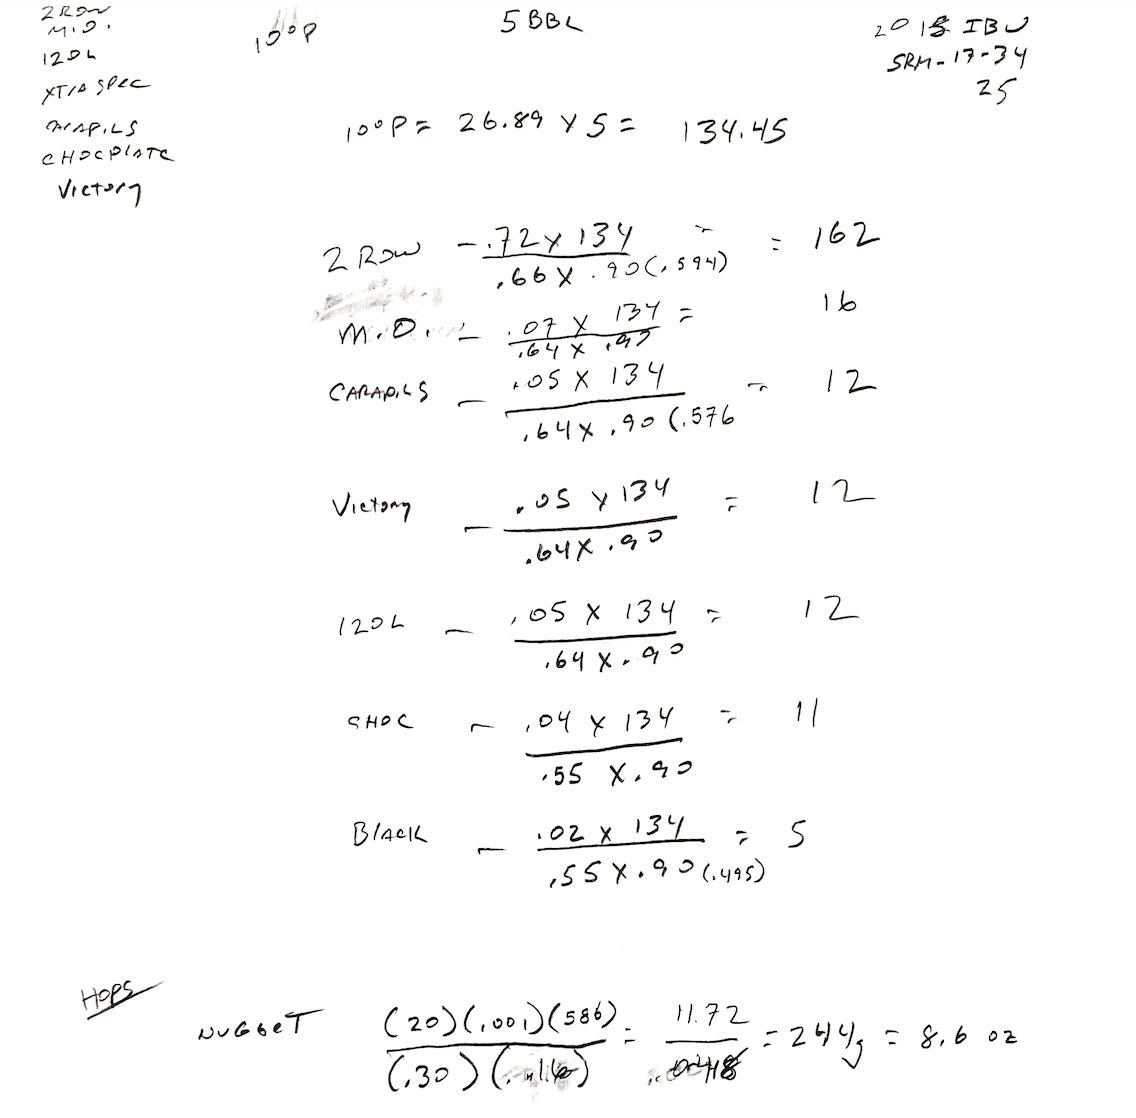 2 ROW
M.O.
120L
XTRA SPEC
CARAPILS
CHOCOLATE
Victory
10°P
5 BBL
20 IBU
SRM - 17-34
25
10°P = 26.89 x 5 = 134.45
2 ROW - .72 x 134 / .66 x .90 (.594) = 162
M.O. - .07 x 134 / .64 x .90 = 16
CARAPILS - .05 x 134 / .64 x .90 (.576 = 12
Victory - .05 x 134 / .64 x .90 = 12
120L - .05 x 134 / .64 x .90 = 12
CHOC - .04 x 134 / .55 x .90 = 11
Black - .02 x 134 / .55 x .90 (.495) = 5
HOPS
NUGGET (20)(.001)(586) / (.30)(.16) = 11.72 / = 244g = 8.6 oz